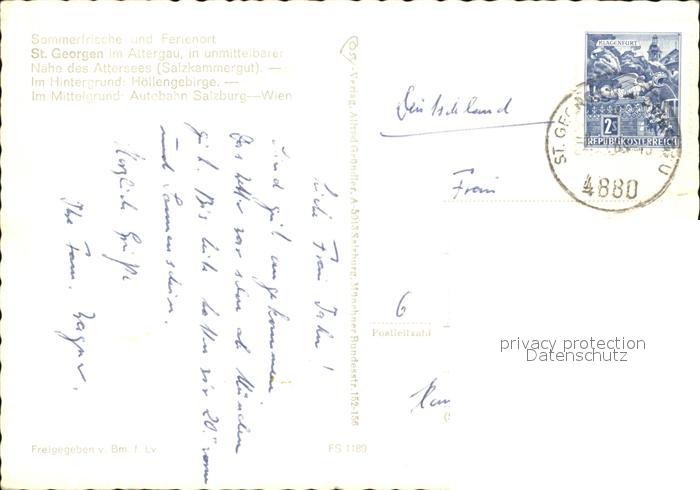 Sommerfrische und Ferienort
St. Georgen im Attergau, in unmittelbarer
Nähe des Attersees (Salzkammergut). —
Im Hintergrund: Höllengebirge. —
Im Mittelgrund: Autobahn Salzburg—Wien
Liebe Frau Jahn!
Sind gut angekommen
Das Wetter war schon ab München
gut. Bis heute hatten wir 20° warm
und Sonnenschein.
Herzliche Grüße
Ihre Fam.
Freigegeben v. Bm. f. Lv
FS 1189
-Verlag, Alfred Gründler, A 5013 Salzburg, Münchner Bundesstr. 152-156
KLAGENFURT
2S
REPUBLIK ÖSTERREICH
ST. GEORG
U
4880
Deutschland
Frau
6
Postleitzahl
privacy protection
Datenschutz